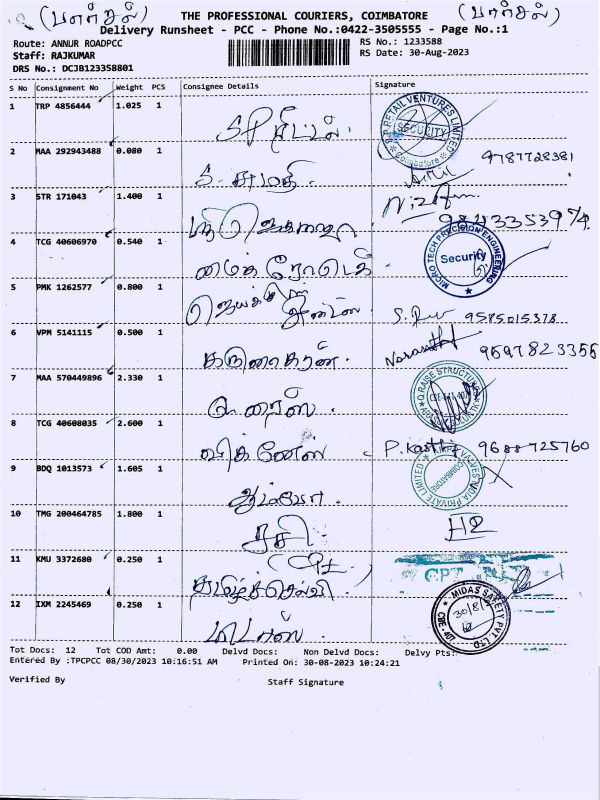 (பார்சல்) THE PROFESSIONAL COURIERS, COIMBATORE (பார்சல்)
Delivery Runsheet - PCC - Phone No.:0422-3505555 - Page No.:1
Route: ANNUR ROADPCC RS No.: 1233588
Staff: RAJKUMAR RS Date: 30-Aug-2023
DRS No.: DCJB123358801
S No Consignment No Weight PCS Consignee Details Signature
1 TRP 4856444 1.025 1
S.P. ரீட்டல். S.P. RETAIL VENTURES LIMITED SECURITY Coimbatore
2 MAA 292943488 0.080 1 9787728381
S. சுமதி.
3 STR 171043 1.400 1 Nizam
9843353974
4 TCG 40606970 0.540 1
மைக்ரோடெக் MICRO TECH PRECISION ENGINEERING Security
5 PMK 1262577 0.800 1
S. 9585015378
6 VPM 5141115 0.500 1
கருணாகரன். 9697823356
7 MAA 570449896 2.330 1
கு ரைஸ். Q RAISE STRUCTURAL
8 TCG 40608035 2.600 1
விக்னேஸ். P. 9688725760
9 BDQ 1013573 1.605 1
PRIVATE LIMITED COIMBATORE
10 TMG 200464785 1.800 1
ரசி
11 KMU 3372680 0.250 1
தமிழ்ச்செல்வி
12 IXM 2245469 0.250 1
மிடாஸ். MIDAS SAFETY PVT LTD 30/8/2
Tot Docs: 12 Tot COD Amt: 0.00 Delvd Docs: Non Delvd Docs: Delvy Pts:
Entered By :TPCPCC 08/30/2023 10:16:51 AM Printed On: 30-08-2023 10:24:21
Verified By Staff Signature